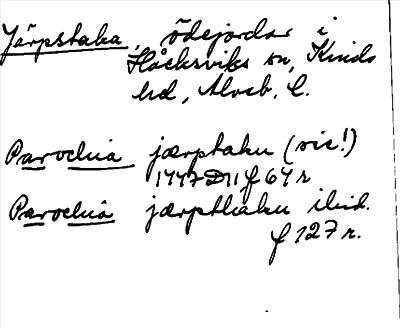 Järpstaka, ödejordar i
Håcksviks sn, Kinds
hd, Älvsb. l.
Parochia jærptaku (sic!)
1447 D 11 f 64 r
Parochia jærpthaku ibid.
f 127 r.